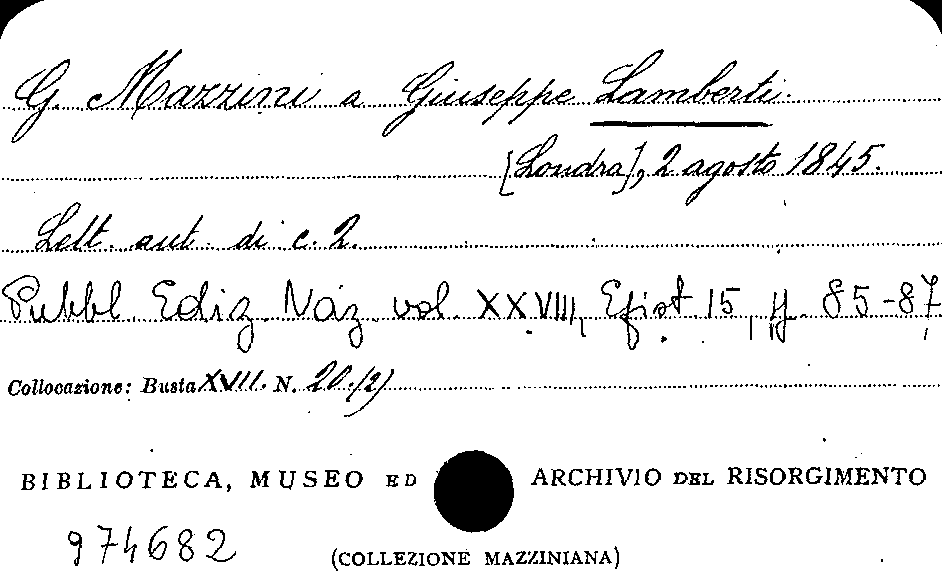 G. Mazzini a Giuseppe Lamberti.
[Londra], 2 agosto 1845.
Lett. aut. di c. 2.
Pubbl. Ediz. Naz. vol. XXVIII, Epist. 15, pp. 85-87
Collocazione: Busta XVII. N. 20.(2)
BIBLIOTECA, MUSEO ED ARCHIVIO DEL RISORGIMENTO
974682
(COLLEZIONE MAZZINIANA)